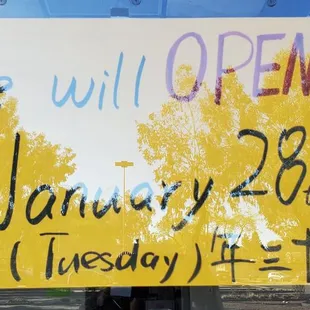 will OPEN
January 28
(Tuesday) 年三十